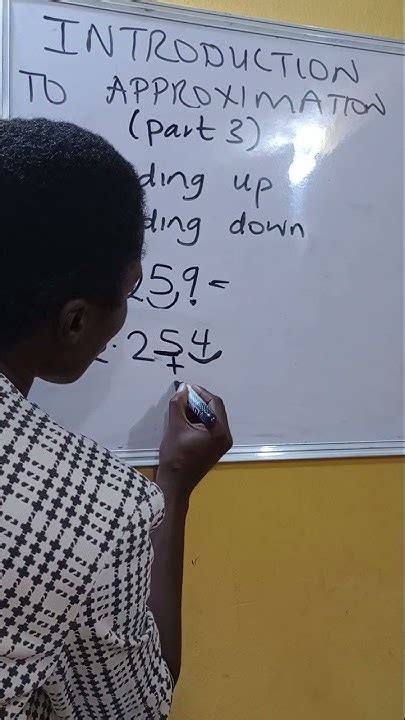 INTRODUCTION
TO APPROXIMATION
(part 3)
ding up
ding down
259 =
2. 254
+